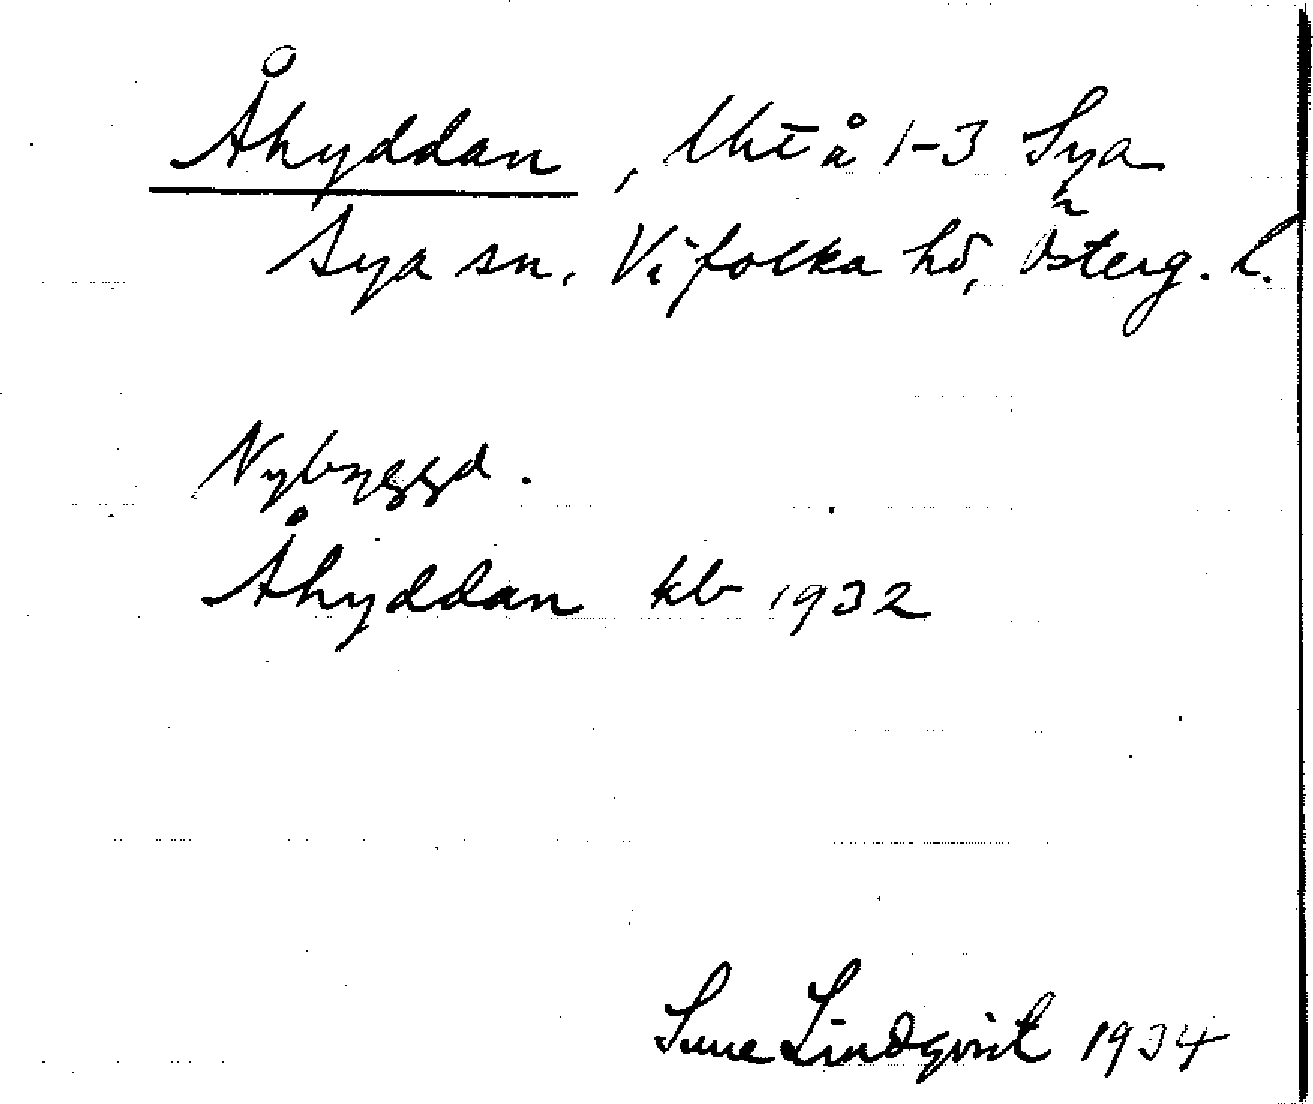 Åhyddan, lht å 1-3 Sya
Sya sn. Vifolka hd, Österg. l.
Nybyggd.
Åhyddan kb 1932
Sune Lindqvist 1934